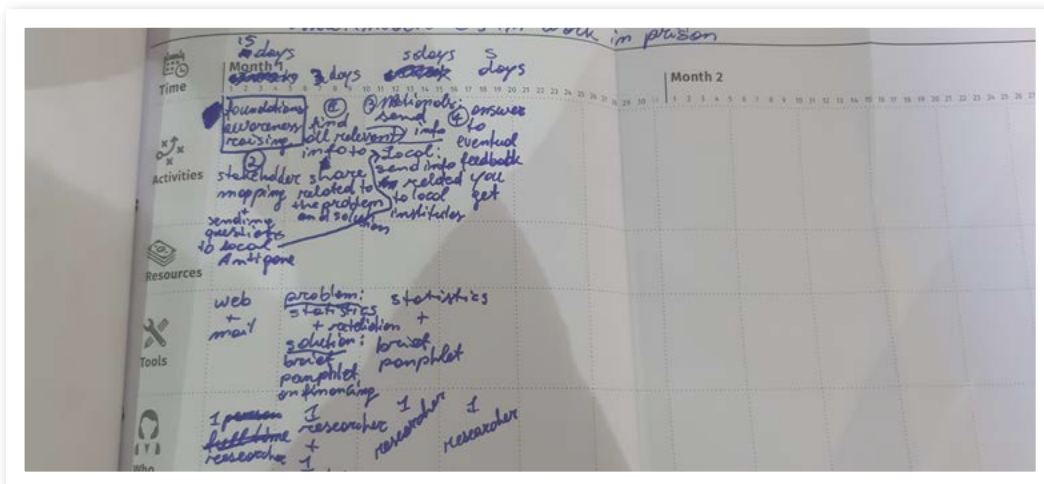 work in prison
15 days 5 days 5
Month 1 days days
Time
1 2 3 4 5 6 7 8 9 10 11 12 13 14 15 16 17 18 19 20 21 22 23 24 25 26 27 28 29 30 31
Month 2
1 2 3 4 5 6 7 8 9 10 11 12 13 14 15 16 17 18 19 20 21 22 23 24 25 26 27
Activities
foundations
awareness
raising
②
stakeholder
mapping
+
sending
questions
to local
Antigone
find
all relevant
info to
share
related to
the problem
and solution
③
send info
Local:
send info
related
to local
④ answer
to
eventual
feedback
you
get
Resources
Tools
web
+
mail
problem:
statistics
+
solution:
brief
pamphlet
on financing
statistics
+
brief
pamphlet
Who
1 person
full time
researcher
1
researcher
+
1
1
researcher
1
researcher